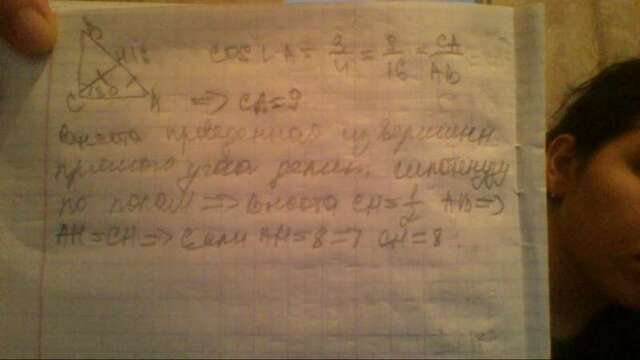 B
H 18
cos ∠ A = 3/4 = 9/16 = CA/AB
C 90 A => CA = 9
Высота проведенная из вершин
прямого угла делит гипотенузу
по полам => Высота CH = 1/2 AB =>
AH = CH => Если AH = 8 => CH = 8.